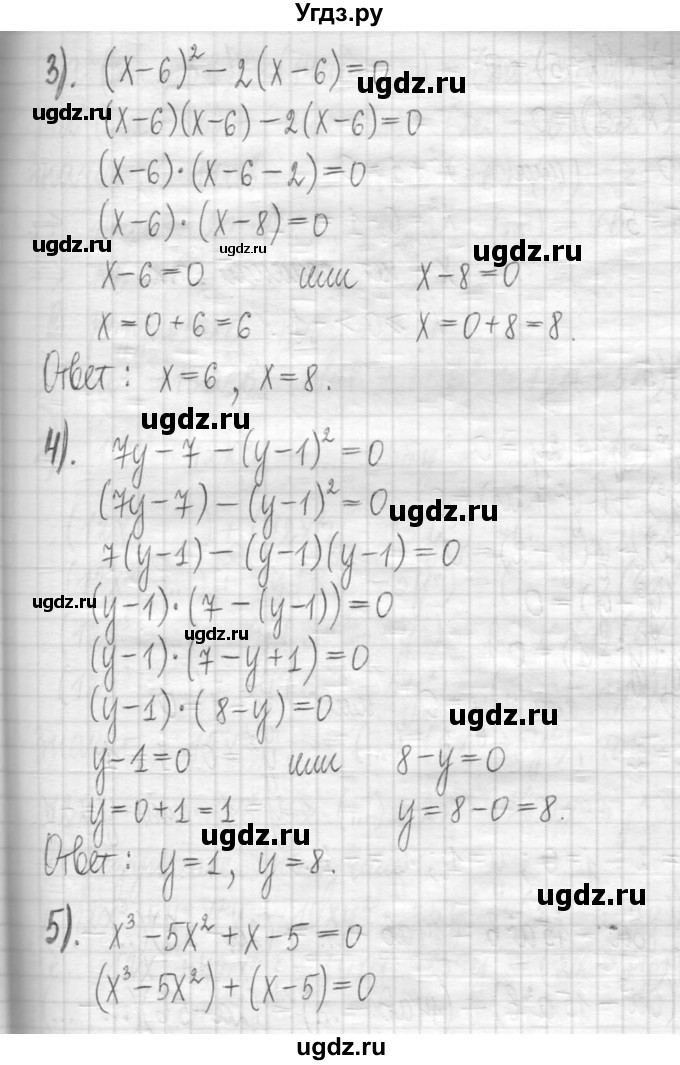 Угдз.ру
3). (x-6)² - 2(x-6)=0
ugdz.ru
ugdz.ru
(x-6)(x-6) - 2(x-6)=0
(x-6)·(x-6-2)=0
(x-6)·(x-8)=0
ugdz.ru
ugdz.ru
ugdz.ru
x-6=0 или x-8=0
x=0+6=6 x=0+8=8.
Ответ: x=6, x=8.
ugdz.ru
4). 7y-7-(y-1)²=0
(7y-7)-(y-1)²=0
ugdz.ru
7(y-1)-(y-1)(y-1)=0
ugdz.ru
(y-1)·(7-(y-1))=0
ugdz.ru
(y-1)·(7-y+1)=0
(y-1)·(8-y)=0
ugdz.ru
y-1=0 или 8-y=0
y=0+1=1 y=8-0=8.
ugdz.ru
Ответ: y=1, y=8.
ugdz.ru
5). x³-5x²+x-5=0
(x³-5x²)+(x-5)=0
ugdz.ru